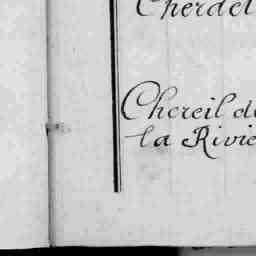 Cherdel
Chereil de
la Rivie